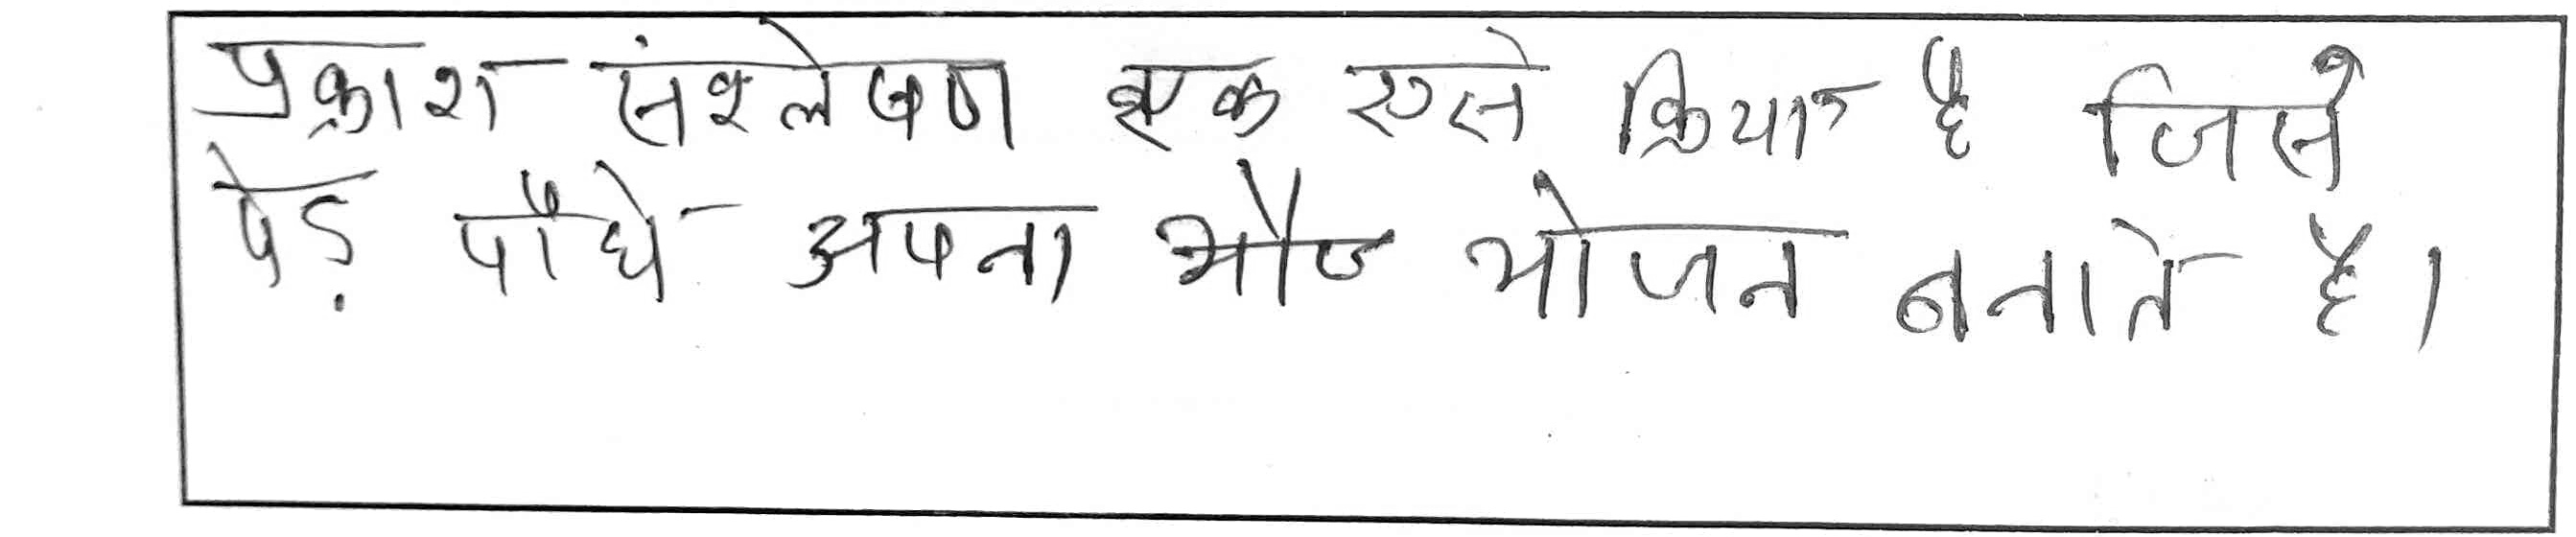 प्रकाश संश्लेषण एक एसे क्रिया है जिसे
पेड़ पौधे अपना भोजन बनाते है।